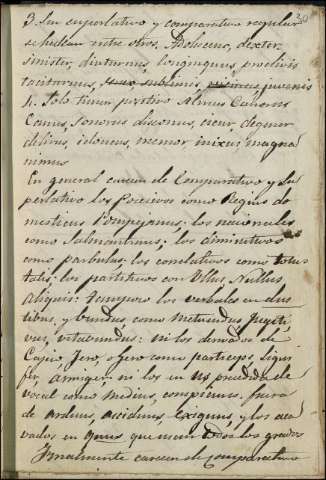 3. Sin superlativo y comparativo regular
se hallan entre otros, Adolescens, dexter,
sinister, diuturnus, longinquus, proclivis
taciturnus, juvenis
4. Solo tienen positivo Almus Calvus
Canus, Sonorus dissonus, cicur, degener
delirus, idoneus, memor
nimus
En general carecen de Comparativo y Su
perlativo los Posesivos como Regius do
mesticus Pompejanus; los nacionales
como Salmantinus; los diminutivos
como parbulus; los correlativos como totus
talis; los partitivos con Ullus, Nullus
Aliquis: Tampoco los verbales en dus
y bundus como Metuendus fugiti
vus, vitabundus: ni los derivados de
Capio, fero, o gero como particeps,
fer, armiger; ni los en us precedido de
vocal como Medius, fuera
de Arduus, Exiguus, y los aca
vados en quus que usan todos los grados
Finalmente carecen de Comparativo